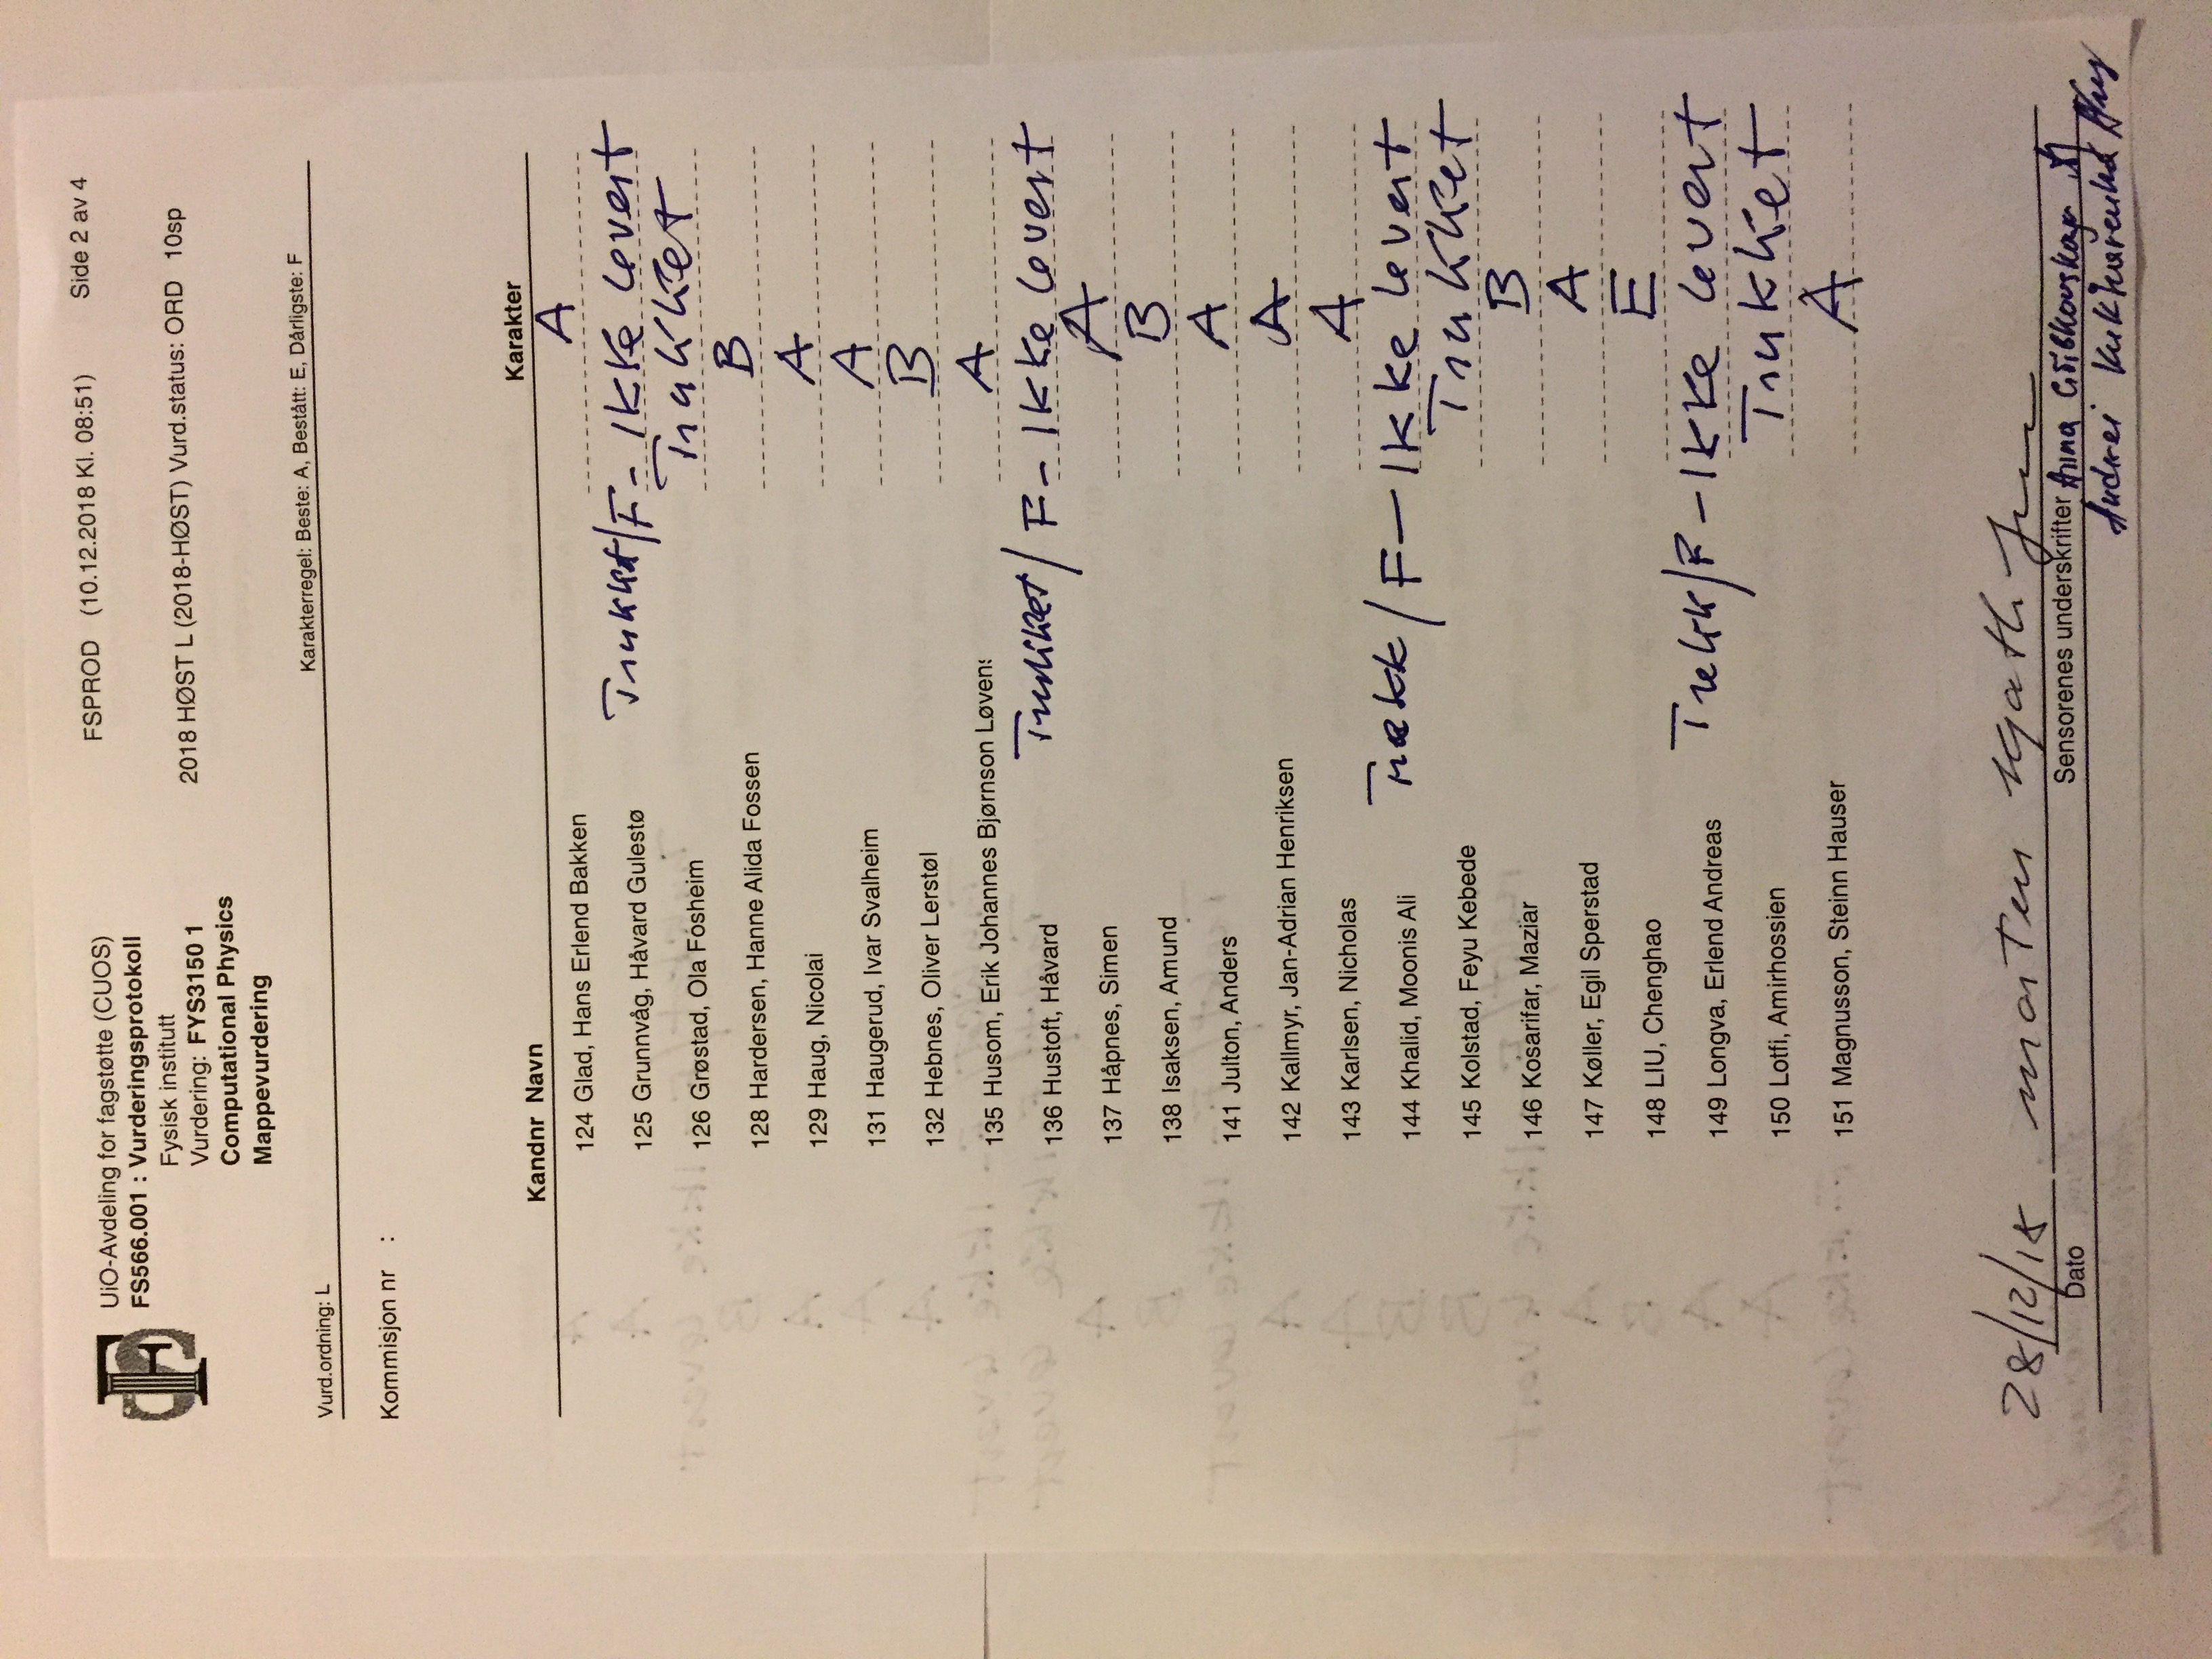 FSPROD (10.12.2018 Kl. 08:51) Side 2 av 4
UiO-Avdeling for fagstøtte (CUOS)
FS566.001 : Vurderingsprotokoll
Fysisk institutt
Vurdering: FYS3150 1
2018 HØST L (2018-HØST) Vurd.status: ORD 10sp
Computational Physics
Mappevurdering
Vurd.ordning: L Karakterregel: Beste: A, Bestått: E, Dårligste: F
Kommisjon nr :
Kandnr Navn Karakter
124 Glad, Hans Erlend Bakken A
125 Grunnvåg, Håvard Gulestø Trukket/F - Ikke levert
126 Grøstad, Ola Fosheim Trukket
128 Hardersen, Hanne Alida Fossen B
129 Haug, Nicolai A
131 Haugerud, Ivar Svalheim A
132 Hebnes, Oliver Lerstøl B
135 Husom, Erik Johannes Bjørnson Løvens A
136 Hustoft, Håvard Trukket/F - Ikke levert
137 Håpnes, Simen A
138 Isaksen, Amund B
141 Julton, Anders A
142 Kallmyr, Jan-Adrian Henriksen A
143 Karlsen, Nicholas A
144 Khalid, Moonis Ali Trekk/F - Ikke levert
145 Kolstad, Feyu Kebede Trukket
146 Kosarifar, Maziar B
147 Køller, Egil Sperstad A
148 LIU, Chenghao E
149 Longva, Erlend Andreas Trekk/F - Ikke levert
150 Lotfi, Amirhossien Trukket
151 Magnusson, Steinn Hauser A
28/12/18 Morten
Dato Sensorenes underskrifter Anna
Andrei Kukharenka